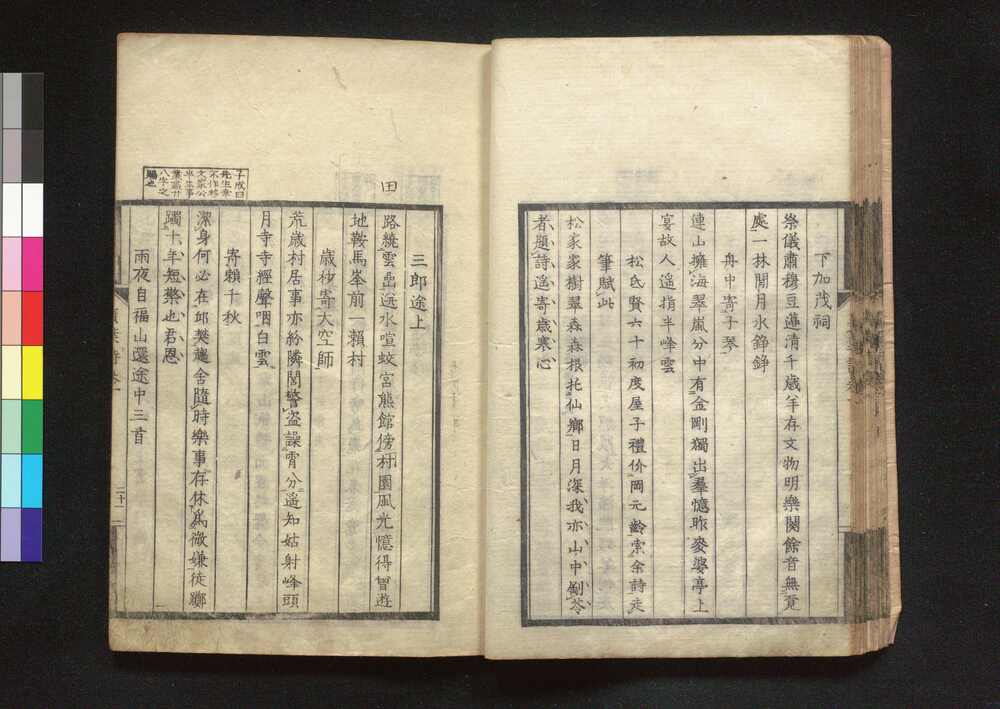 下加茂祠
祭儀肅穆豆籩清千歲羊存文物明樂闋餘音無覔
處一林閒月水錚錚
舟中寄子琴
連山擁海翠嵐分中有金剛獨出羣憶昨麥婆亭上
宴故人遥指半峰雲
松氏賢六十初度屋子禮价岡元齡索余詩走
筆賦此
松家家樹翠森森根托仙鄉日月深我亦山中劚苓
者題詩遥寄歲寒心
三郎途上
路繞雲嵒遠水喧蚊宮熊館傍村園風光憶得曾遊
地鞍馬峯前一賴村
歲杪寄大空師
荒歲村居事亦紛隣閭警盗譟宵分遥知姑射峰頭
月寺寺經聲咽白雲
寄賴千秋
潔身何必在邱樊趨舍隨時樂事存休爲微嫌徒躑
躅十年短褐也君恩
雨夜自福山還途中三首
田
子成曰
先生幸
不作移
文家公
卒生事
業盡廿
八字之
賜也
二十二